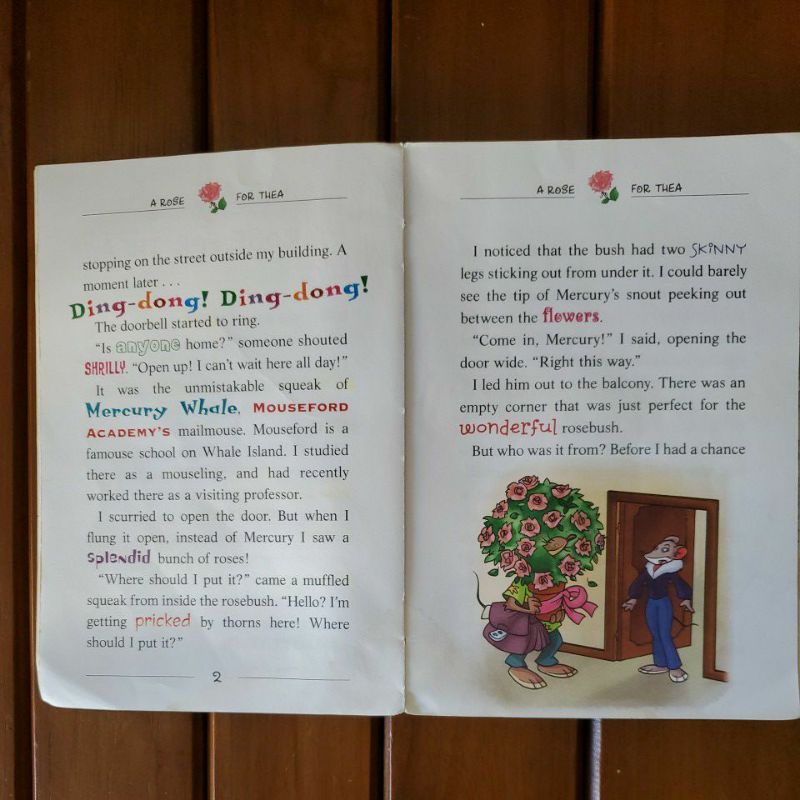 A ROSE FOR THEA
stopping on the street outside my building. A
moment later . . .
Ding-dong! Ding-dong!
The doorbell started to ring.
“Is anyone home?” someone shouted
SHRILLY. “Open up! I can’t wait here all day!”
It was the unmistakable squeak of
Mercury Whale, MOUSEFORD
ACADEMY’S mailmouse. Mouseford is a
famouse school on Whale Island. I studied
there as a mouseling, and had recently
worked there as a visiting professor.
I scurried to open the door. But when I
flung it open, instead of Mercury I saw a
splendid bunch of roses!
“Where should I put it?” came a muffled
squeak from inside the rosebush. “Hello? I’m
getting pricked by thorns here! Where
should I put it?”
2
A ROSE FOR THEA
I noticed that the bush had two SKiNNY
legs sticking out from under it. I could barely
see the tip of Mercury’s snout peeking out
between the flowers.
“Come in, Mercury!” I said, opening the
door wide. “Right this way.”
I led him out to the balcony. There was an
empty corner that was just perfect for the
wonderful rosebush.
But who was it from? Before I had a chance